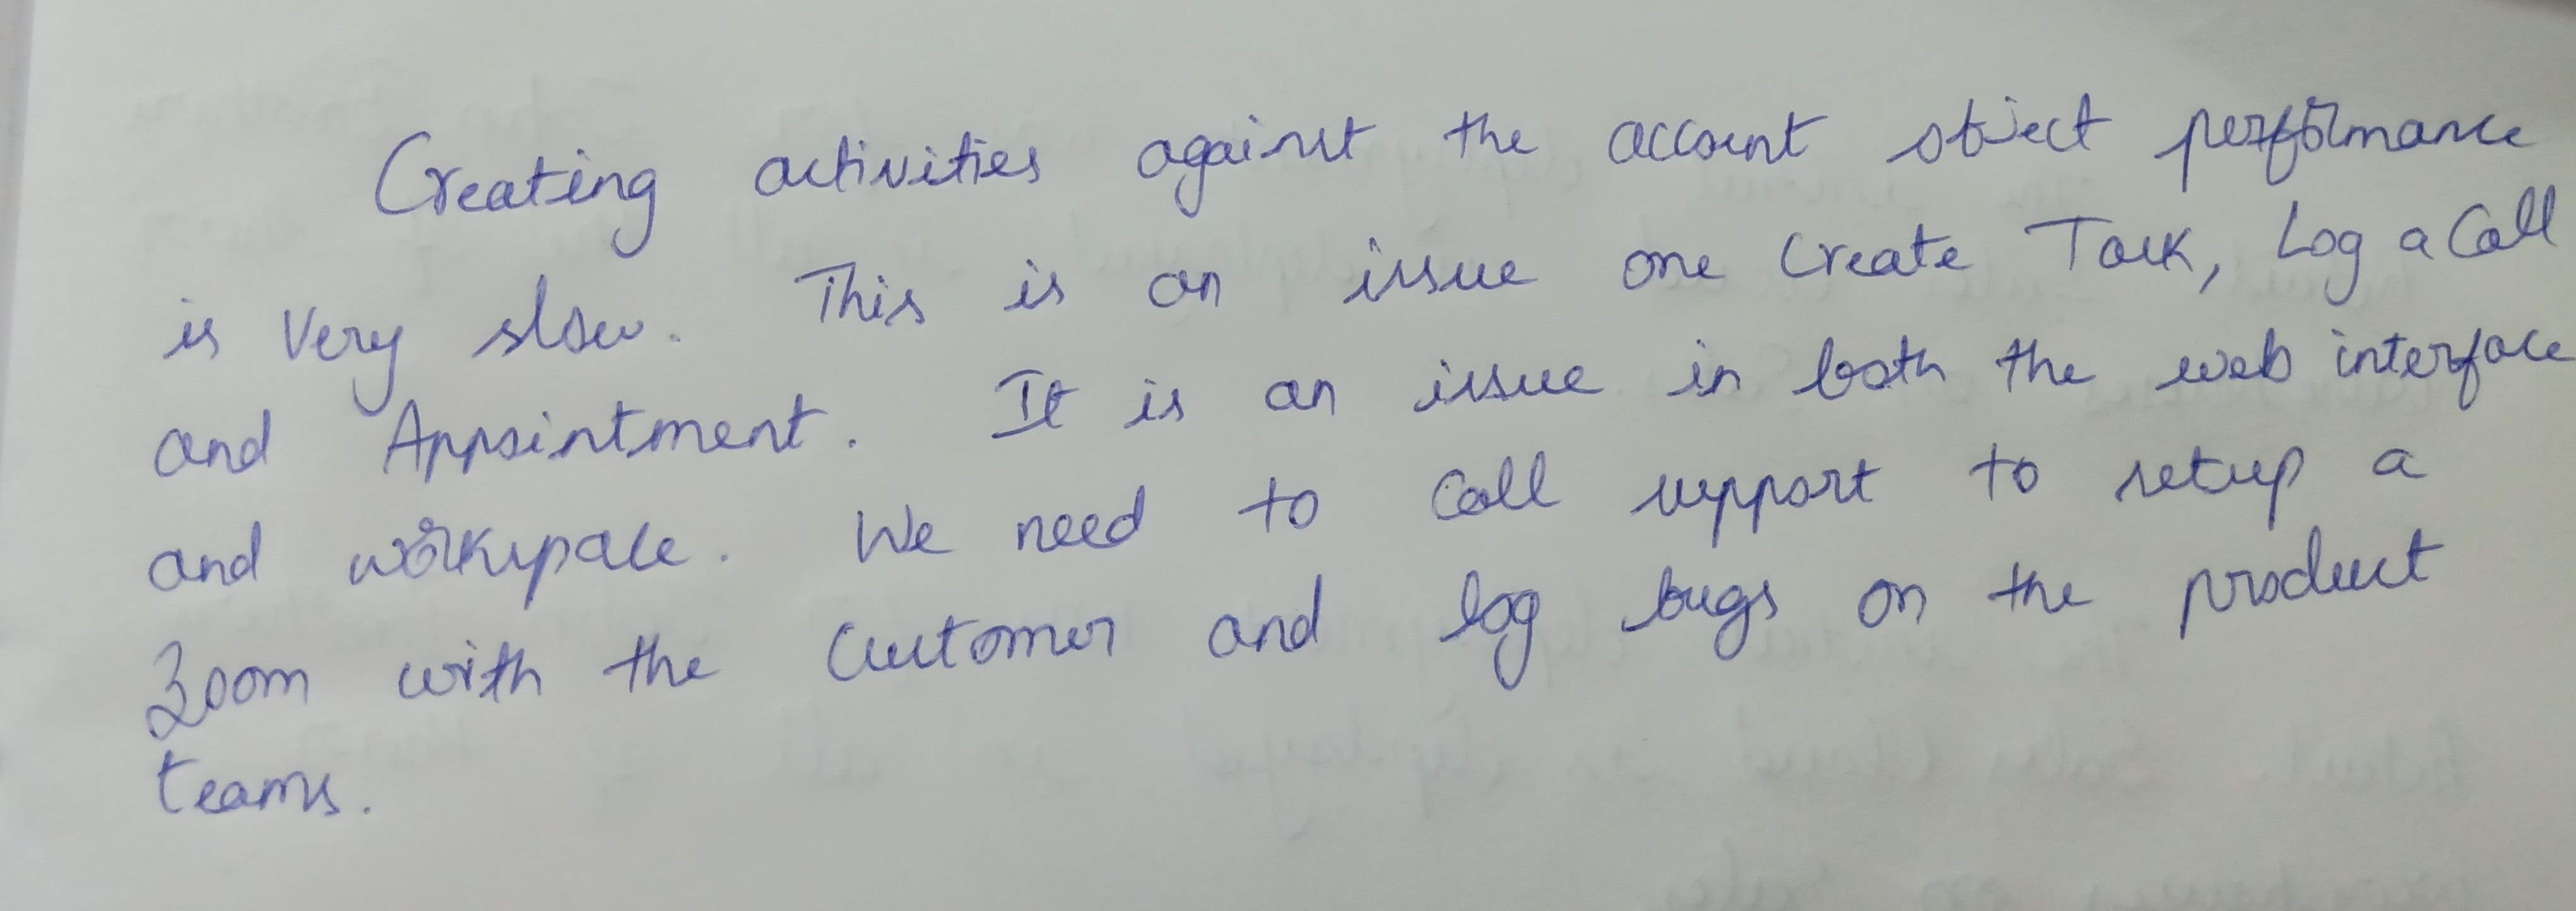 Creating activities against the account object performance
is Very slow. This is an issue one Create Task, Log a Call
and Appointment. It is an issue in both the web interface
and workspace. We need to Call support to setup a
Zoom with the Customer and log bugs on the product
teams.